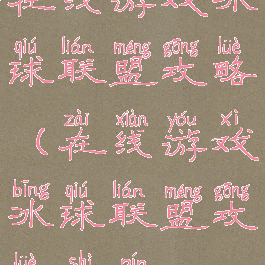 在线游戏冰
qiú lián méng gōng lüè
球联盟攻略
zài xiàn yóu xì
（在线游戏
bīng qiú lián méng gōng
冰球联盟攻
lüè shì pín